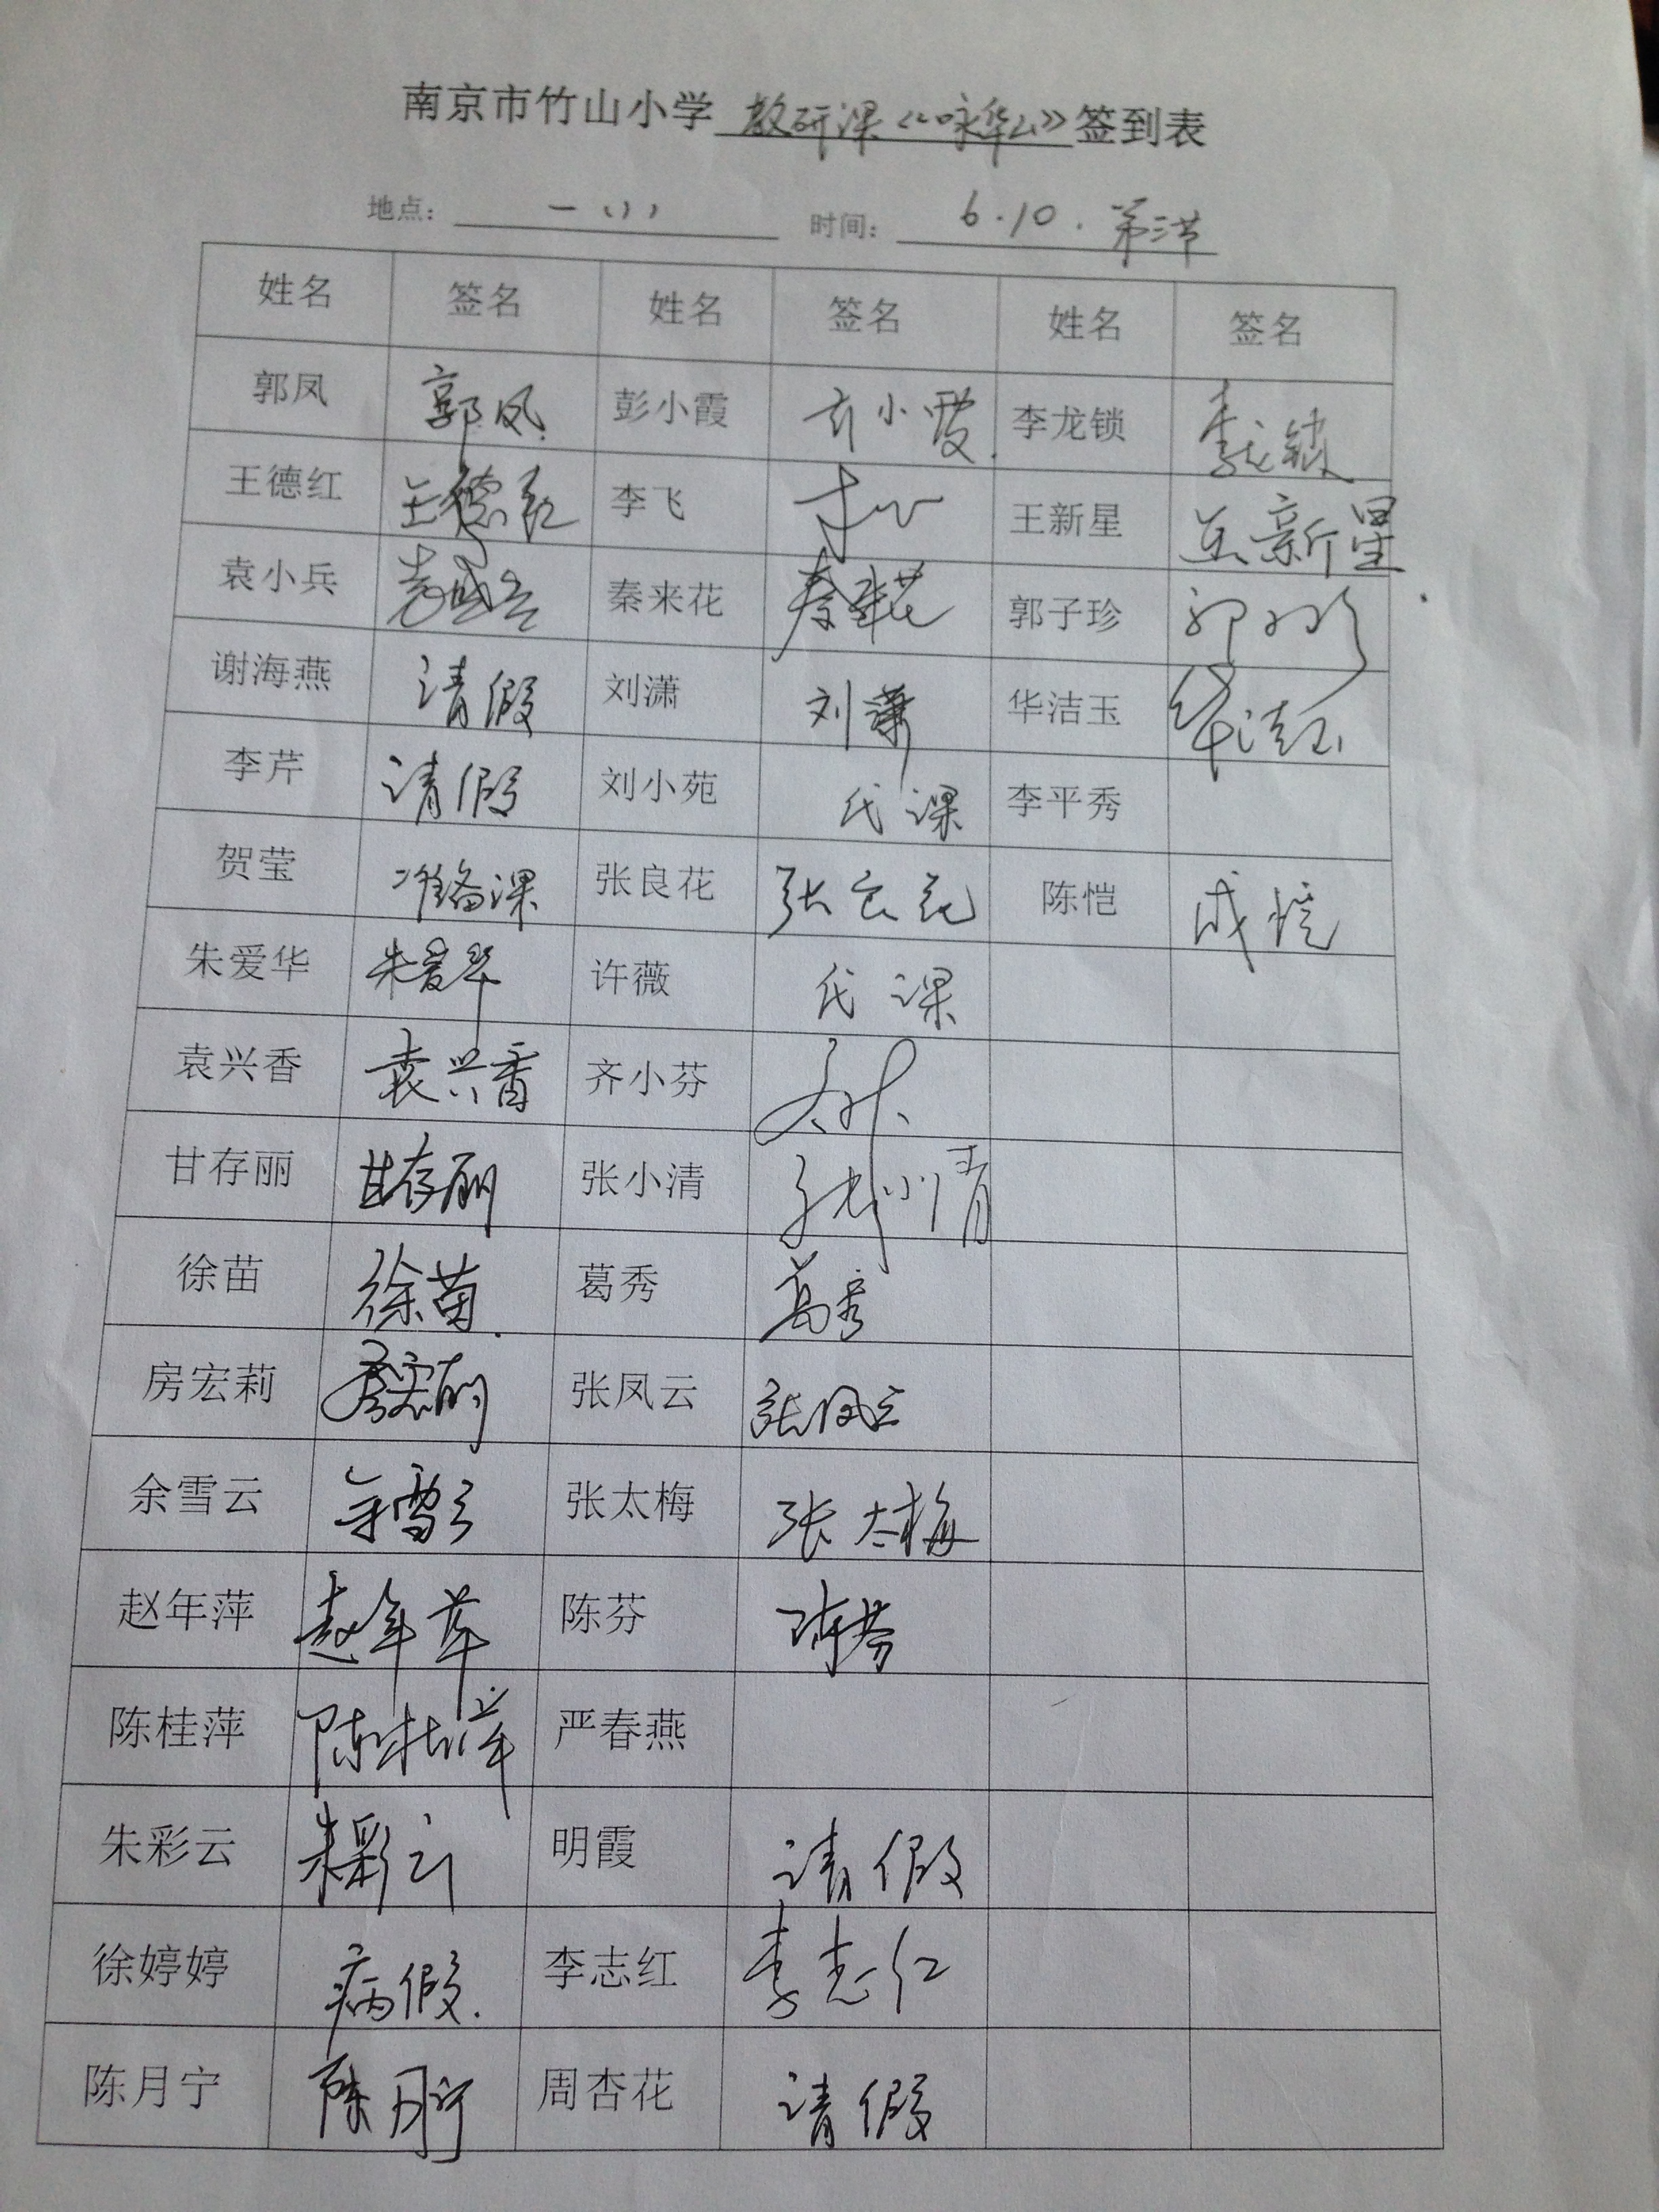 南京市竹山小学 教研课《咏华山》签到表
地点： 一（1） 时间： 6.10. 第三节
姓名 签名 姓名 签名 姓名 签名
郭凤 郭凤 彭小霞 彭小霞 李龙锁 李龙锁
王德红 王德红 李飞 李飞 王新星 王新星
袁小兵 秦来花 秦来花 郭子珍 郭子珍
谢海燕 请假 刘潇 刘潇 华洁玉 华洁玉
李芹 请假 刘小苑 代课 李平秀
贺莹 准备课 张良花 张良花 陈恺
朱爱华 朱爱华 许薇 代课
袁兴香 袁兴香 齐小芬
甘存丽 甘存丽 张小清 张小清
徐苗 徐苗 葛秀 葛秀
房宏莉 张凤云 张凤云
余雪云 余雪云 张太梅 张太梅
赵年萍 赵年萍 陈芬 陈芬
陈桂萍 陈桂萍 严春燕
朱彩云 朱彩云 明霞 请假
徐婷婷 病假. 李志红 李志红
陈月宁 陈月宁 周杏花 请假